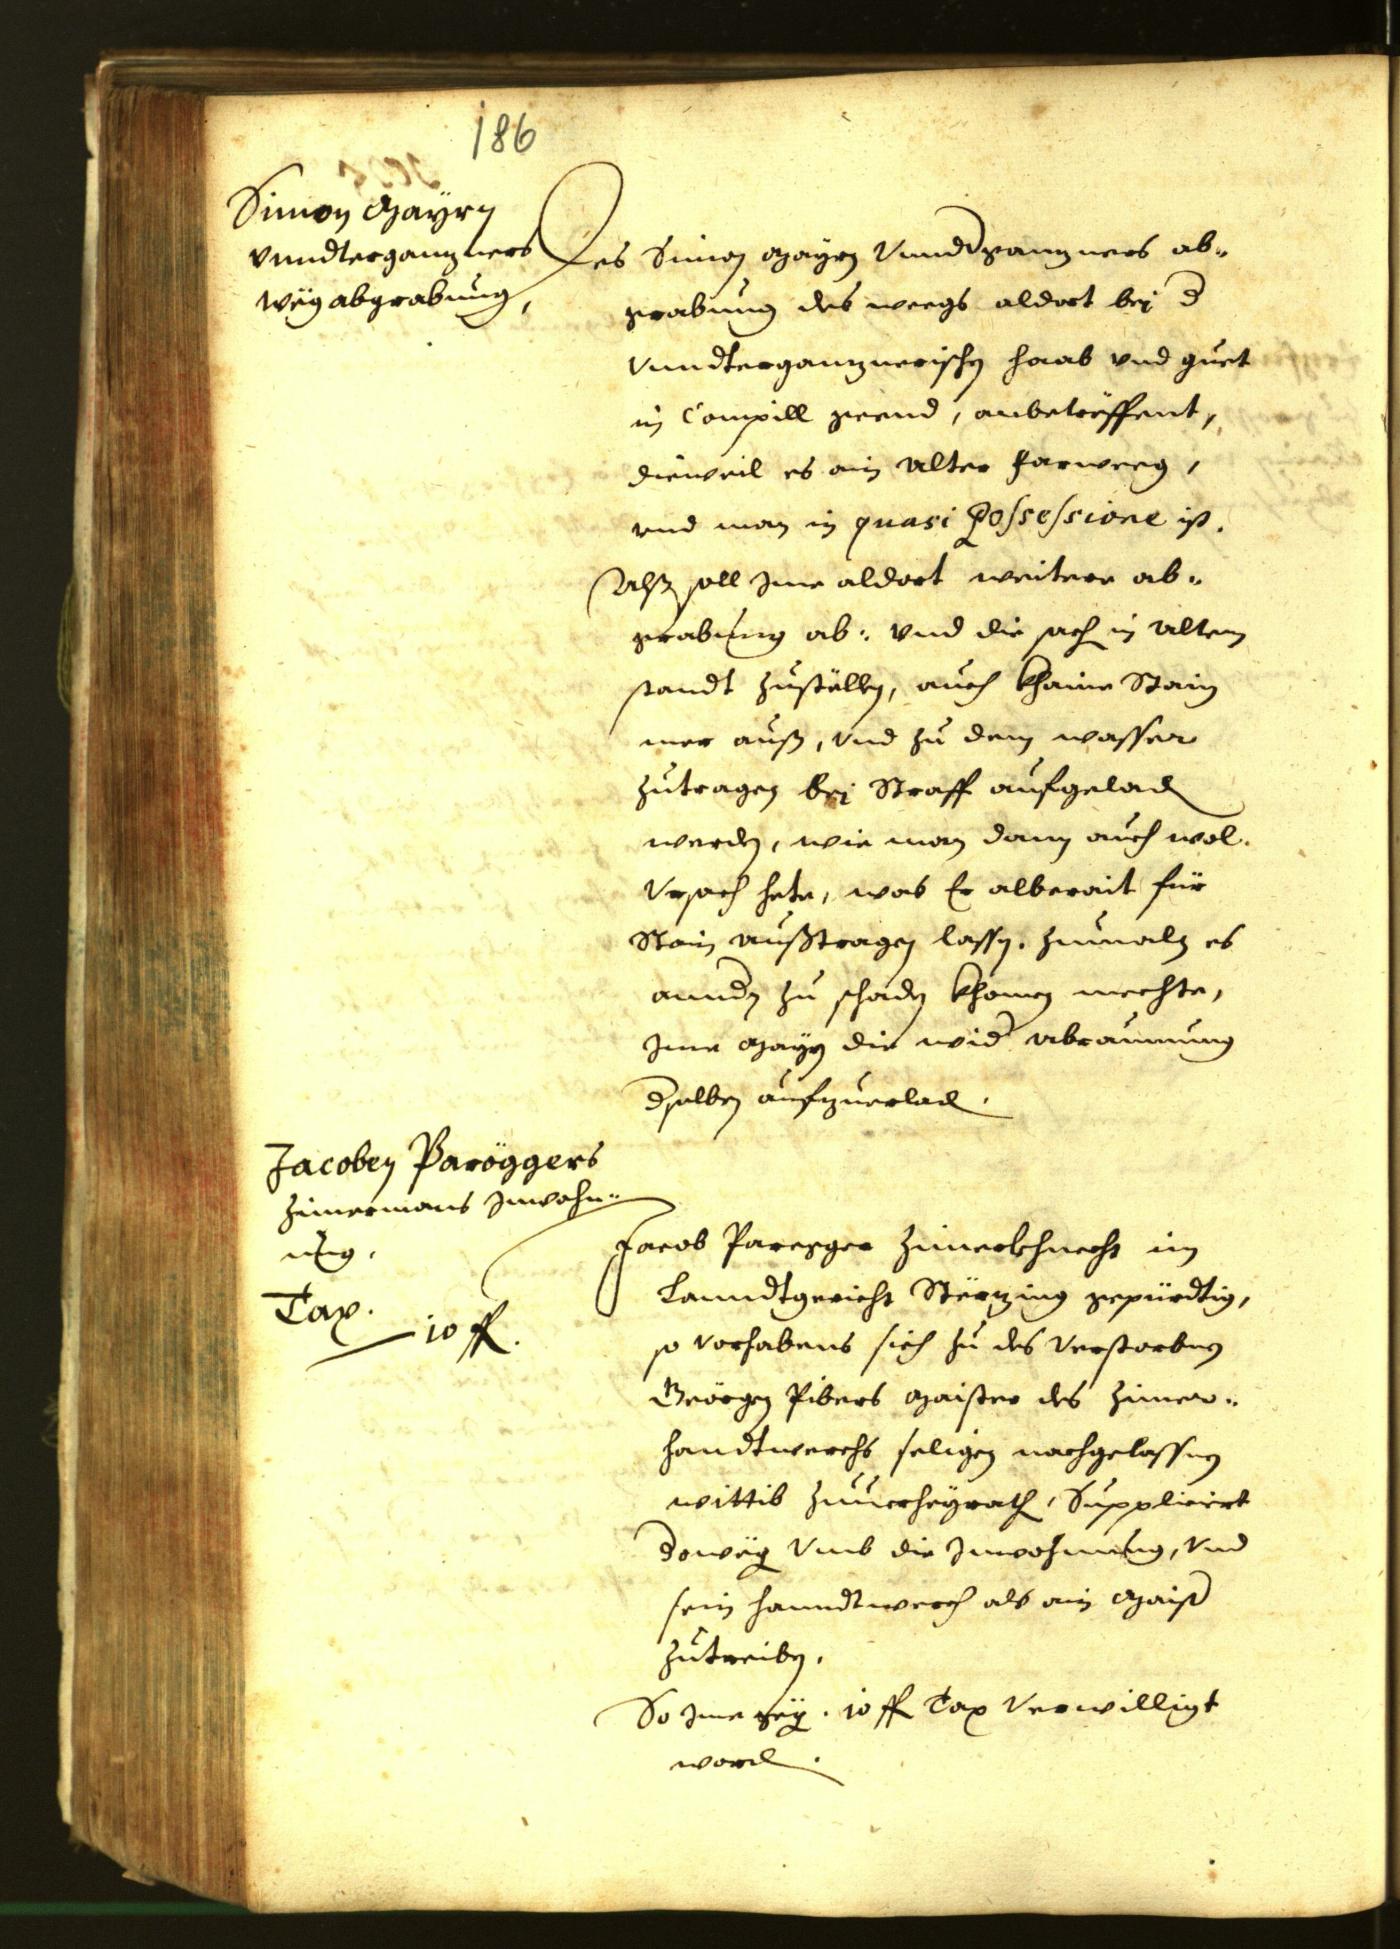 186
Simon Mayrn
Vnndterganzners
Wëg abgrabung,
Des Simon Mayrn Vnndtganzners ab-
grabung des weegs aldort bej d
Vnndterganznerischn haab vnd guet
in Campill geend, anbetröffent,
dieweil es ain alter farweeg,
vnd man in quasi possessione ist.
Alß soll Jme aldort weitere ab-
grabung ab- vnd die sach in alten
standt zustëlln, auch khaine Stain
mer auß, vnd zu dem wasser
zutragen bej Straff aufgeladn
werdn, wie man dann auch wol
Vrsach hete, was Er alberait für
Stain außtragen lassn. zumaln es
anndn zu schadn khomen mechte,
Jme Mayrn die wid abraumung
dselben aufzuerladn.
Jacoben Paröggers
Zimermans Jnwohn-
ung,
Tax.
10 fl.
Jacob Paregger Zimerkhnecht im
Lanndtgericht Stërzing gepürdtig,
so vorhabens sich zu des verstorbnen
Geörgen Pibers Maister des Zimer-
handtwerchs seligen nachgelassnen
wittib zuuerheyrathn, Supplicirt
dowëg vmb die Jnwohnung, vnd
sein hanndtwerch als ain Maist
zutreibn.
So Jme geg. 10 fl Tax verwilligt
wordn.